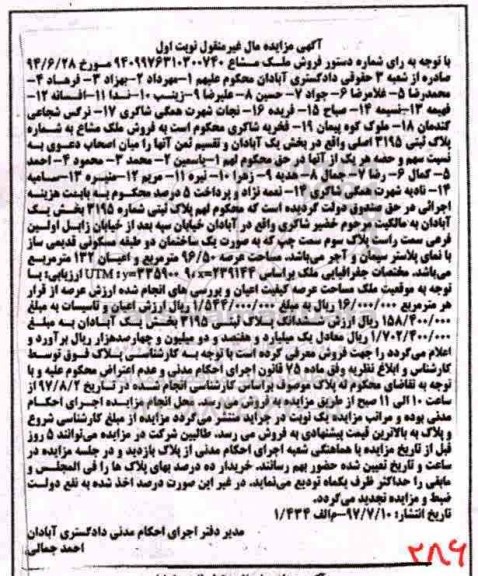 آگهی مزایده مال غیرمنقول نوبت اول
با توجه به رای شماره دستور فروش ملک مشاع ۹۴۰۹۹۷۶۳۱۰۳۰۰۷۴۰ مورخ ۹۴/۶/۲۸
صادره از شعبه ۳ حقوقی دادگستری آبادان محکوم علیهم ۱-مهرداد ۲-بهزاد ۳- فرهاد ۴-
محمدرضا ۵- غلامرضا ۶- جواد ۷- حسین ۸- علیرضا ۹-زینب ۱۰-ندا ۱۱-افسانه ۱۲-
فهیمه ۱۳-نسیمه ۱۴- صباح ۱۵- فریده ۱۶- نجات شهرت همگی شاکری ۱۷- نرگس شجاعی
گندمان ۱۸- ملوک کوه پیمان ۱۹- فخریه شاکری محکوم است به فروش ملک مشاع به شماره
پلاک ثبتی ۳۱۹۵ اصلی واقع در بخش یک آبادان و تقسیم ثمن آنها را میان اصحاب دعوی به
نسبت سهم و حصه هر یک از آنها در حق محکوم لهم ۱-یاسمین ۲- محمد ۳- محمود ۴- احمد
۵- کمال ۶- رضا ۷- جمال ۸- هدیه ۹- زهرا ۱۰- نیره ۱۱- مریم ۱۲-منیره ۱۳- سامیه
۱۴- نادیه شهرت همگی شاکری ۱۴- نعمه نژاد و پرداخت ۵ درصد محکوم به بابت هزینه
اجرائی در حق صندوق دولت گردیده است که محکوم لهم پلاک ثبتی شماره ۳۱۹۵ بخش یک
آبادان به مالکیت مرحوم خضیر شاکری واقع در آبادان خیابان سپه بعد از خیابان زابل اولین
فرعی سمت راست پلاک سوم سمت چپ که به صورت یک ساختمان دو طبقه مسکونی قدیمی ساز
با نمای پلاستر سیمان و آجر می‌باشد. مساحت عرصه ۹۶/۵۰ مترمربع و اعیان ۱۳۲ مترمربع
می‌باشد. مختصات جغرافیایی ملک براساس UTM: y=۳۳۵۹۰۰ ۹،x=۲۳۹۱۴۴ ارزیابی: با
توجه به موقعیت ملک مساحت عرصه کیفیت اعیان و بررسی های انجام شده ارزش عرصه از قرار
هر مترمربع ۱۶/۰۰۰/۰۰۰ ریال به مبلغ ۱/۵۴۴/۰۰۰/۰۰۰ ریال ارزش اعیان و تاسیسات به مبلغ
۱۵۸/۴۰۰/۰۰۰ ریال ارزش ششدانگ پلاک ثبتی ۳۱۹۵ بخش یک آبادان به مبلغ
۱/۷۰۲/۴۰۰/۰۰۰ ریال معادل یک میلیارد و هفتصد و دو میلیون و چهارصدهزار ریال برآورد و
اعلام می‌گردد را جهت فروش معرفی کرده است با توجه به کارشناسی پلاک فوق توسط
کارشناس و ابلاغ نظریه وفق ماده ۷۵ قانون اجرای احکام مدنی و عدم اعتراض محکوم علیه و با
توجه به تقاضای محکوم له پلاک موصوف براساس کارشناسی انجام شده در تاریخ ۹۷/۸/۲ از
ساعت ۱۰ الی ۱۱ صبح از طریق مزایده به فروش می رسد. محل انجام مزایده اجرای احکام
مدنی بوده و مراتب مزایده یک نوبت در جراید منتشر می‌گردد مزایده از مبلغ کارشناسی شروع
و پلاک به بالاترین قیمت پیشنهادی به فروش می رسد. طالبین شرکت در مزایده می‌توانند ۵ روز
قبل از تاریخ مزایده با هماهنگی شعبه اجرای احکام مدنی از پلاک بازدید و در جلسه مزایده در
ساعت و تاریخ تعیین شده حضور بهم رسانند. خریدار ده درصد بهای پلاک ها را فی المجلس و
مابقی را حداکثر ظرف یکماه تودیع می‌نماید. در غیر این صورت درصد اخذ شده به نفع دولت
ضبط و مزایده تجدید می‌گردد.
تاریخ انتشار: ۹۷/۷/۱۰-م‌الف ۱/۴۳۴
مدیر دفتر اجرای احکام مدنی دادگستری آبادان
احمد جمالی
۲۸۶